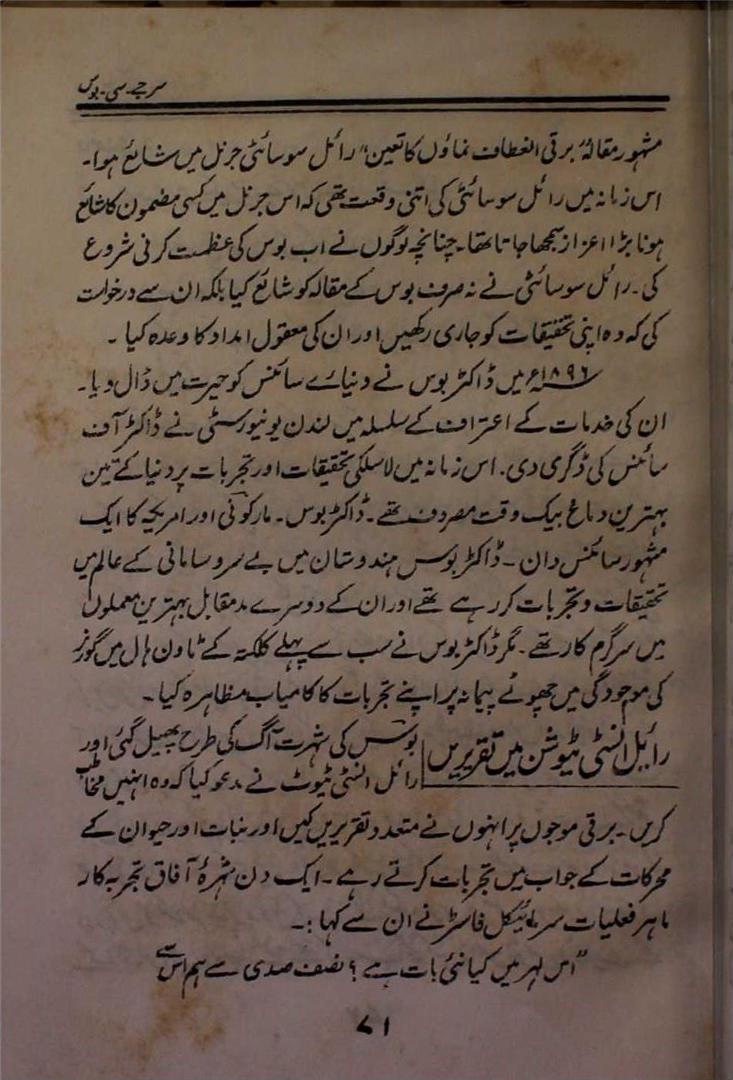 سر جے۔ سی۔ بوس
مشہور مقالہ "برقی انعطاف نماؤں کا تعین" رائل سوسائٹی جرنل میں شایع ہوا۔
اس زمانہ میں رائل سوسائٹی کی اتنی وقعت تھی کہ اس جرنل میں کسی مضمون کا شائع
ہونا بڑا اعزاز سمجھا جاتا تھا۔ چنانچہ لوگوں نے اب بوس کی عظمت کرنی شروع
کی۔ رائل سوسائٹی نے نہ صرف بوس کے مقالہ کو شائع کیا بلکہ ان سے درخواست
کی کہ وہ اپنی تحقیقات کو جاری رکھیں اور ان کی معقول امداد کا وعدہ کیا۔
۱۸۹۶ء میں ڈاکٹر بوس نے دنیائے سائنس کو حیرت میں ڈال دیا۔
ان کی خدمات کے اعتراف کے سلسلہ میں لندن یونیورسٹی نے ڈاکٹر آف
سائنس کی ڈگری دی۔ اس زمانہ میں لاسلکی تحقیقات اور تجربات پر دنیا کے تین
بہترین دماغ بیک وقت مصروف تھے۔ ڈاکٹر بوس۔ مارکونی اور امریکہ کا ایک
مشہور سائنس دان۔ ڈاکٹر بوس ہندوستان میں بے سرو سامانی کے عالم میں
تحقیقات و تجربات کر رہے تھے اور ان کے دوسرے مدمقابل بہترین معملوں
میں سرگرم کار تھے۔ مگر ڈاکٹر بوس نے سب سے پہلے کلکتہ کے ٹاون ہال میں گورنر
کی موجودگی میں چھوٹے پیمانہ پر اپنے تجربات کا کامیاب مظاہرہ کیا۔
رایل انسٹی ٹیوشن میں تقریریں
بوس کی شہرت آگ کی طرح پھیل گئی اور
رائل انسٹی ٹیوٹ نے مدعو کیا کہ وہ انہیں مخاطب
کریں۔ برقی موجوں پر انہوں نے متعدد تقریریں کیں اور نبات اور حیوان کے
محرکات کے جواب میں تجربات کرتے رہے۔ ایک دن شہرۂ آفاق تجربہ کار
ماہر فعلیات سر مائیکل فاسٹر نے ان سے کہا:۔
"اس لہر میں کیا نئی بات ہے؟ نصف صدی سے ہم اس سے
۷۱